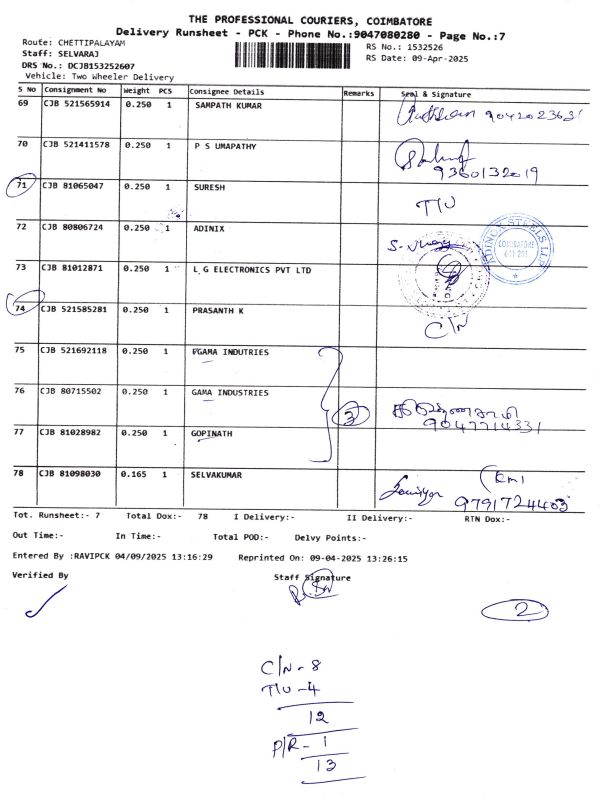 THE PROFESSIONAL COURIERS, COIMBATORE
Delivery Runsheet - PCK - Phone No.:9047080280 - Page No.:7
Route: CHETTIPALAYAM
RS No.: 1532526
Staff: SELVARAJ
RS Date: 09-Apr-2025
DRS No.: DCJB153252607
Vehicle: Two Wheeler Delivery
S No Consignment No Weight PCS Consignee Details Remarks Seal & Signature
69 CJB 521565914 0.250 1 SAMPATH KUMAR
70 CJB 521411578 0.250 1 P S UMAPATHY
9360132019
71 CJB 81065047 0.250 1 SURESH
T/U
72 CJB 80806724 0.250 1 ADINIX
COIMBATORE
73 CJB 81012871 0.250 1 L G ELECTRONICS PVT LTD
74 CJB 521585281 0.250 1 PRASANTH K
C/N
75 CJB 521692118 0.250 1 PGAMA INDUTRIES
76 CJB 80715502 0.250 1 GAMA INDUSTRIES
3
9047714331
77 CJB 81028982 0.250 1 GOPINATH
78 CJB 81098030 0.165 1 SELVAKUMAR
9791724403
Tot. Runsheet:- 7 Total Dox:- 78 I Delivery:- II Delivery:- RTN Dox:-
Out Time:- In Time:- Total POD:- Delvy Points:-
Entered By :RAVIPCK 04/09/2025 13:16:29 Reprinted On: 09-04-2025 13:26:15
Verified By Staff Signature
2
C/N - 8
T/U - 4
12
P/R - 1
13